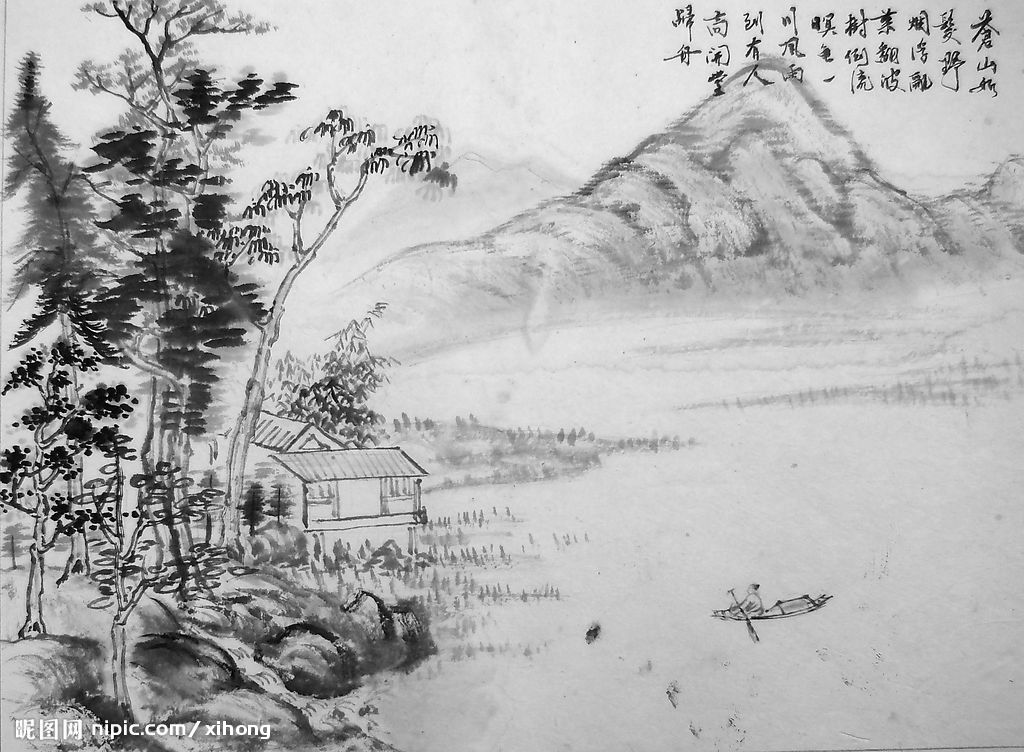 蒼山如
髮野
烟浮亂
葉翻波
樹倒流
暝色一
川風雨
到有人
高閣望
歸舟
昵图网 nipic.com/xihong